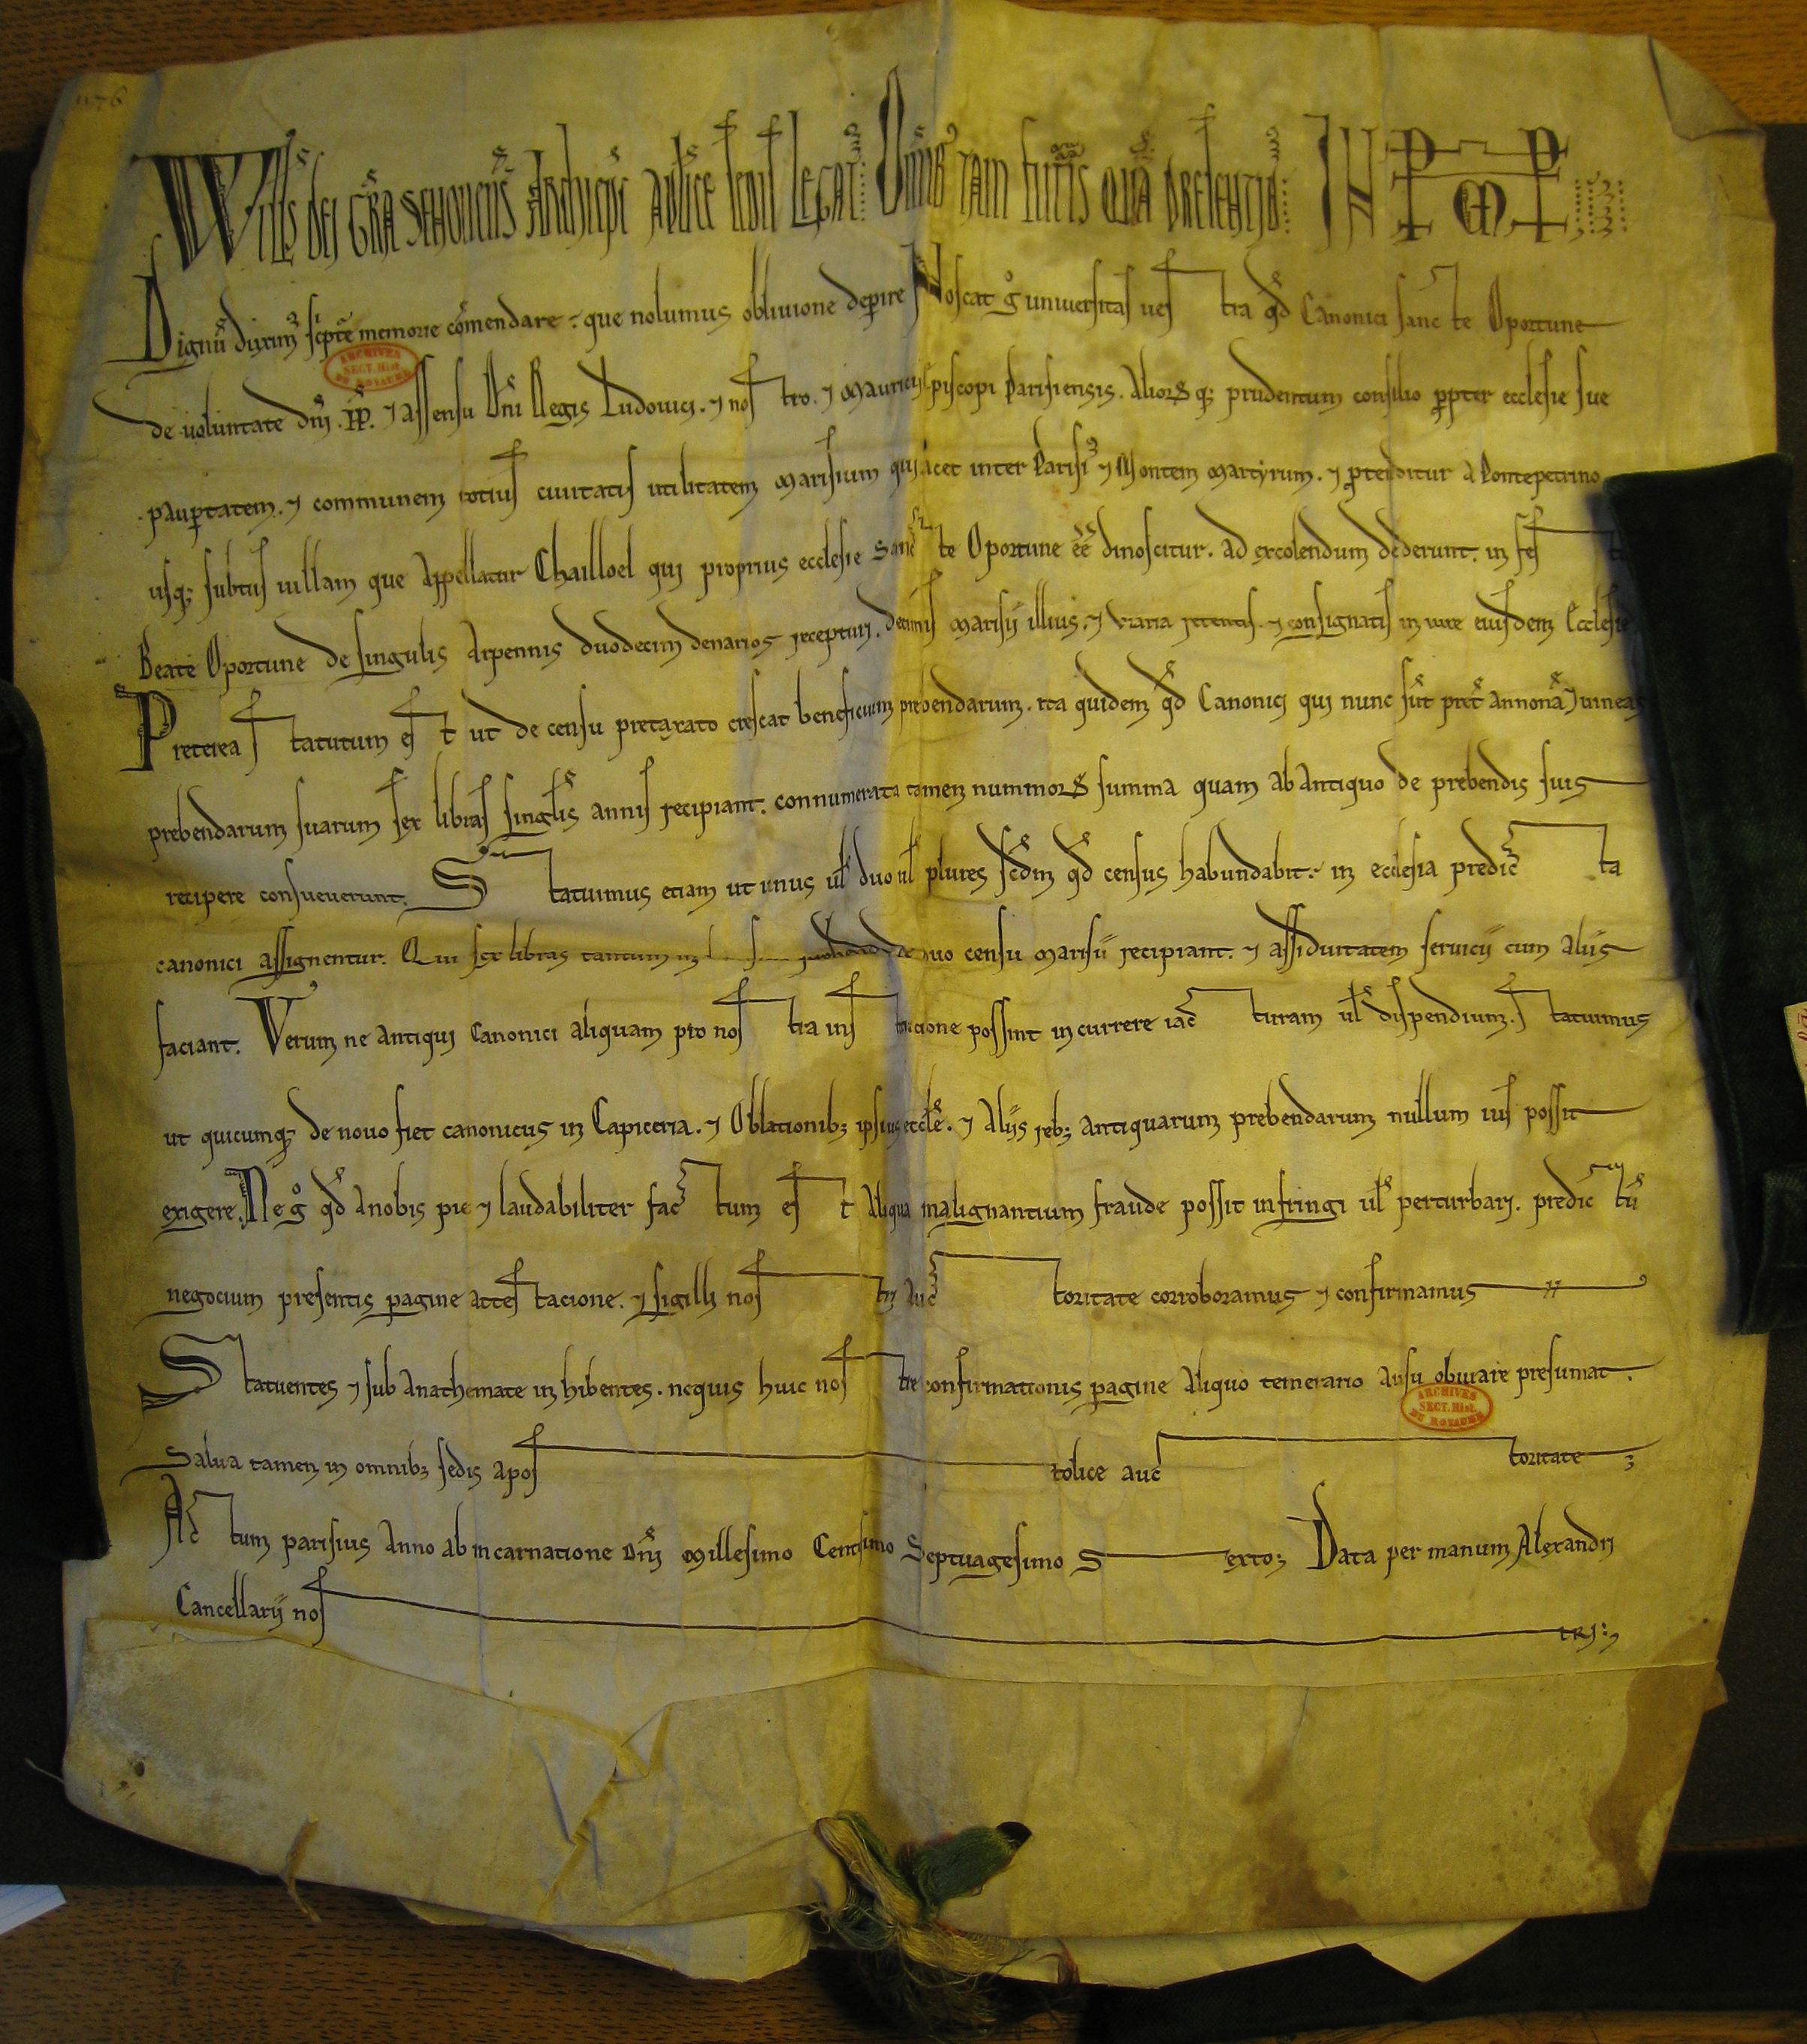 1176
Wills dei gra senonensis Archiepc aplice sedis Legat Omnib tam futuris qua presentib IN PPM
Dignu duxim scpte memorie comendare que nolumus obliuione deperire Noscat g uniuersitas uestra qd Canonici sancte Oportune
ARCHIVES SECT. Hist. DU ROYAUME
de uoluntate dni .PP. ⁊ assensu Dni Regis Ludouici. ⁊ nostro. ⁊ Mauricii Episcopi Parisiensis. Aliorq; prudentum consilio propter ecclesie sue
paupertatem. ⁊ communem totius ciuitatis utilitatem Marisium qui iacet inter Parisi ⁊ Montem Martyrum. ⁊ protenditur a Pontepetrino
usq; subtus uillam que Appellatur Chailloel qui proprius ecclesie Sancte Oportune ee dinoscitur. ad excolendum dederunt. in fes
Beate Oportune de singulis Arpennis duodecim denarios recepturi. decimis Marisii illius. ⁊ uiaria retentis. ⁊ consignatis in iure eiusdem Ecclesie
Preterea statutum est ut de censu pretaxato crescat beneficium prebendarum. ita quidem qd Canonici qui nunc sut pret annona ⁊ uineas
prebendarum suarum sex libras singlis annis recipiant. connumerata tamen nummor summa quam ab antiquo de prebendis suis
recipere consueuerunt. Statuimus etiam ut unus ul duo ul plures scdm qd census habundabit. in ecclesia predicta
canonici assignentur. Qui sex libras tantum censu Marisii recipiant. ⁊ assiduitatem seruicii cum aliis
faciant. Verum ne antiqui Canonici aliquam pro nostra institucione possint incurrere iacturam ul dispendium. statuimus
ut quicumq; de nouo fiet canonicus in Capiceria. ⁊ Oblationib; ipsius eccle. ⁊ Aliis reb; antiquarum prebendarum nullum ius possit
exigere. Ne g qd a nobis pie ⁊ laudabiliter factum est Aliqua malignantium fraude possit infringi ul perturbari. predictu
negocium presentis pagine attestacione. ⁊ sigilli nostri auctoritate corroboramus ⁊ confirmamus
Statuentes ⁊ sub Anathemate inhibentes. nequis huic nostre confirmationis pagine Aliquo temerario Ausu obuiare presumat.
ARCHIVES SECT. Hist. DU ROYAUME
Salua tamen in omnib; sedis apostolice auctoritate
Actum parisius Anno ab incarnatione Dni Millesimo Centesimo Septuagesimo Sexto; Data per manum Alexandri
Cancellarii nostri